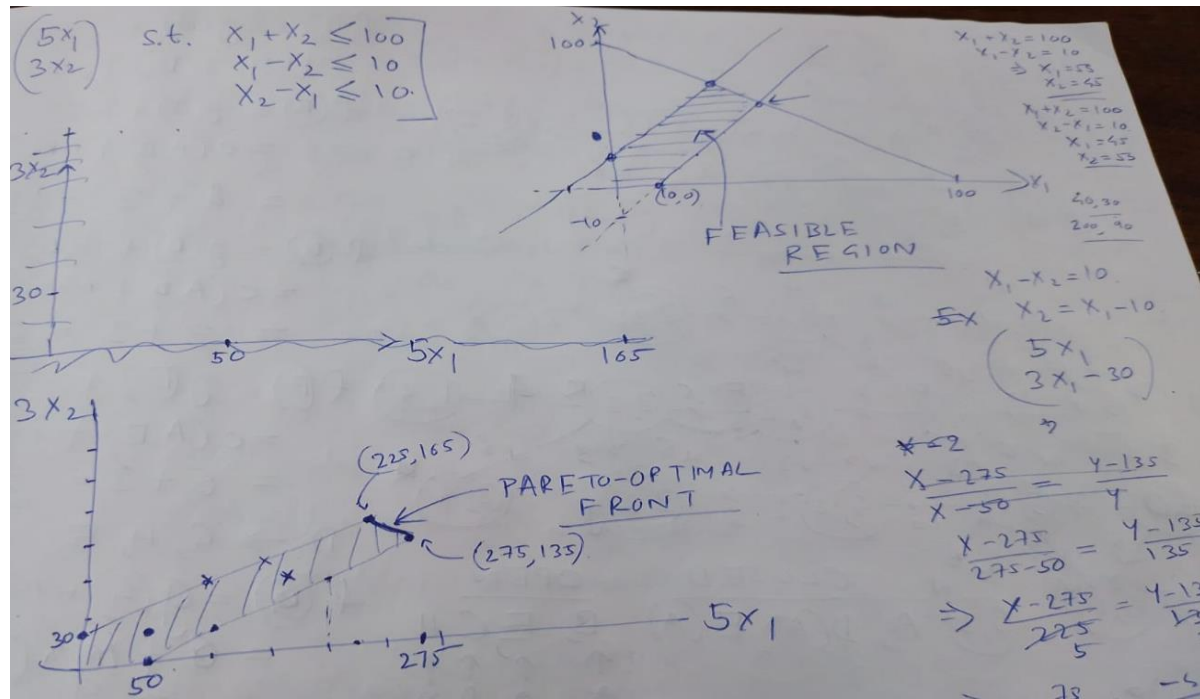 (5x₁
3x₂) s.t. x₁ + x₂ ≤ 100
x₁ - x₂ ≤ 10
x₂ - x₁ ≤ 10
x₂
100
-10
(0,0)
100
x₁
FEASIBLE
REGION
x₁ + x₂ = 100
x₁ - x₂ = 10
⇒ x₁ = 55
x₂ = 45
x₁ + x₂ = 100
x₂ - x₁ = 10
x₁ = 45
x₂ = 55
40,30
200,90
3x₂
30
50
5x₁
165
x₁ - x₂ = 10
5x x₂ = x₁ - 10
(5x₁
3x₁ - 30)
3x₂
(225,165)
PARETO-OPTIMAL
FRONT
(275,135)
30
50
275
5x₁
x-275 / x-50 = y-135 / y
x-275 / 275-50 = y-135 / 135
⇒ x-275 / 225 = y-13
5